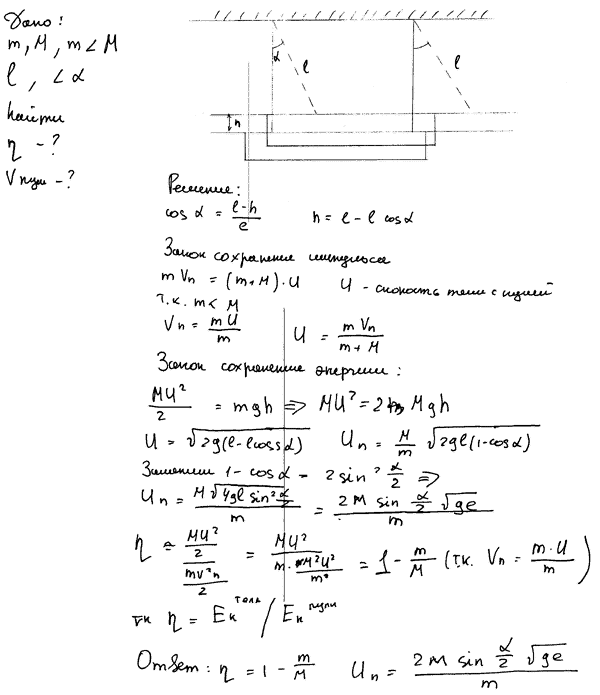 Дано:
m, M, m < M
l, ∠α
Найти
η - ?
Vпули - ?
α
l
l
h
Решение:
cos α = (l-h)/l    h = l - l cos α
Закон сохранения импульса
m Vп = (m+M)·U    U - скорость тела с пулей
т.к. m < M
Vп = mU/m    U = mVп/(m+M)
Закон сохранения энергии:
MU²/2 = mgh => MU² = 2 Mgh
U = √(2g(l-l cos α))    Uп = M/m √(2gl(1-cos α))
Заменим 1 - cos α = 2 sin² α/2 =>
Uп = M√(4gl sin² α/2)/m = 2M sin α/2 √gl/m
η = (MU²/2)/(mv²п/2) = MU²/(m·M²U²/m²) = 1 - m/M (т.к. Vп = m·U/m)
тк η = Eк тела / Eк пули
Ответ: η = 1 - m/M    Uп = 2M sin α/2 √gl/m